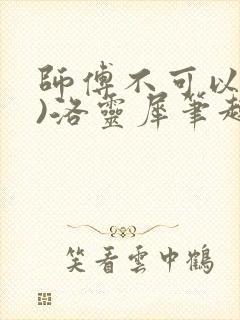 師傅不可以
)洛靈犀筆趣
笑看雲中鶴